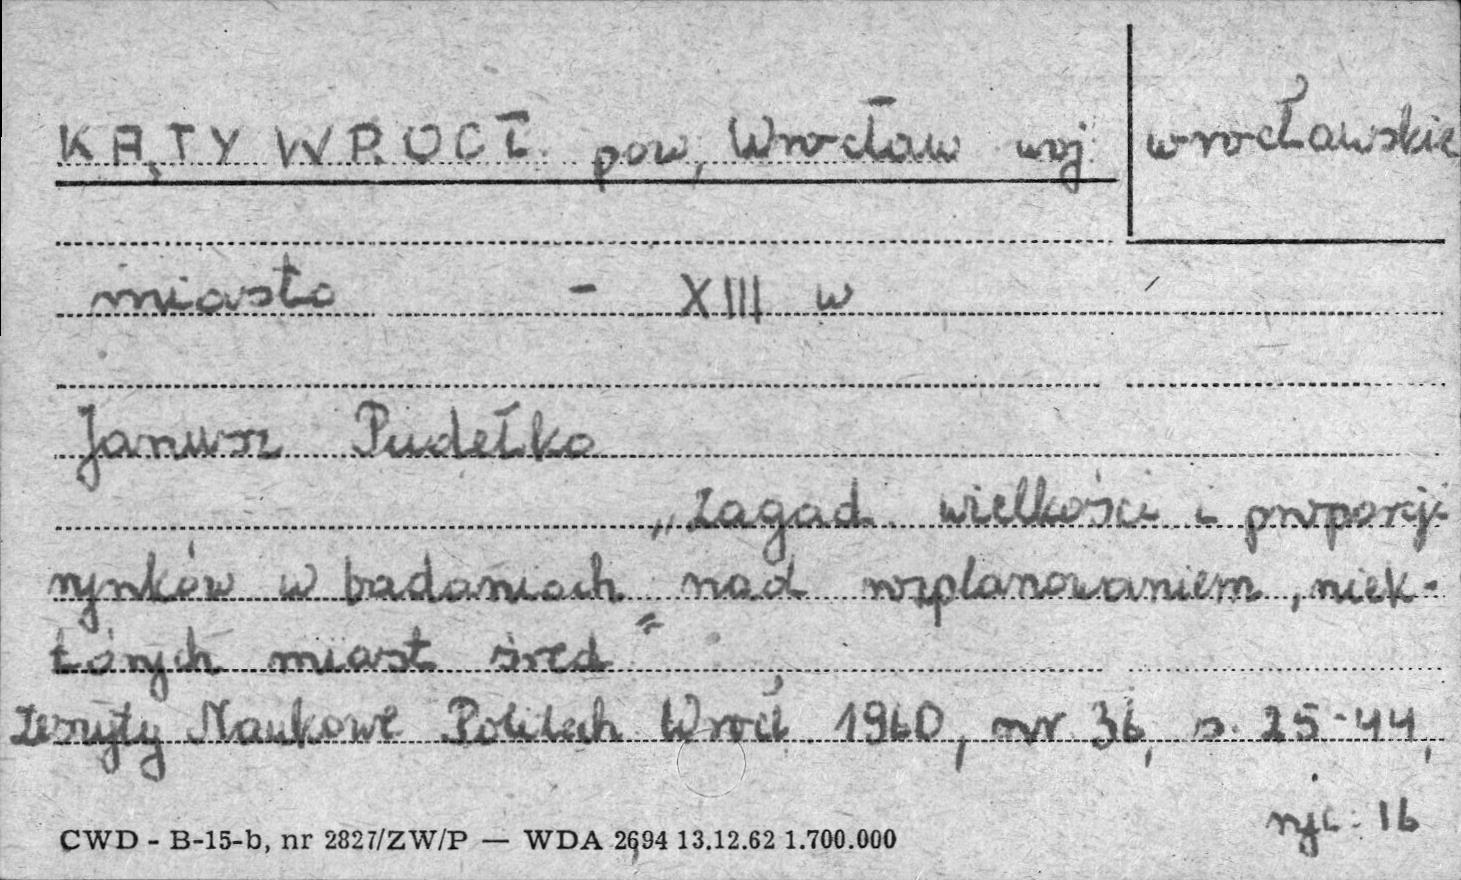 KĄTY WROCŁ. pow, Wrocław woj wrocławskie
miasto - XIII w
Janusz Pudełko
„Zagad. wielkości i proporcji
rynków w badaniach nad rozplanowaniem, niek-
tórych miast śred"
Zeszyty Naukowe Politech Wrocł 1960, nr 36, s. 25-44,
ryc. 16
CWD - B-15-b, nr 2827/ZW/P — WDA 2694 13.12.62 1.700.000